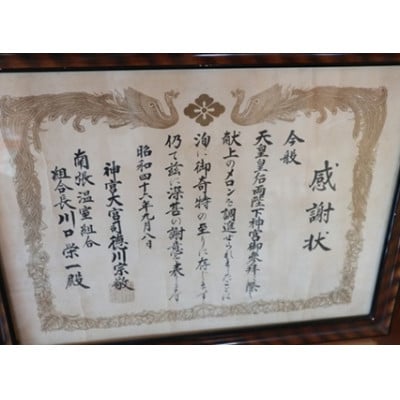 感謝状
今般
天皇皇后両陛下神宮御参拝の際
献上のメロンを調進せられましたことは
洵に御奇特の至りに存じます
仍て茲に深甚の謝意を表します
昭和四十八年九月八日
神宮大宮司徳川宗敬
南張温室組合
組合長川口栄一殿